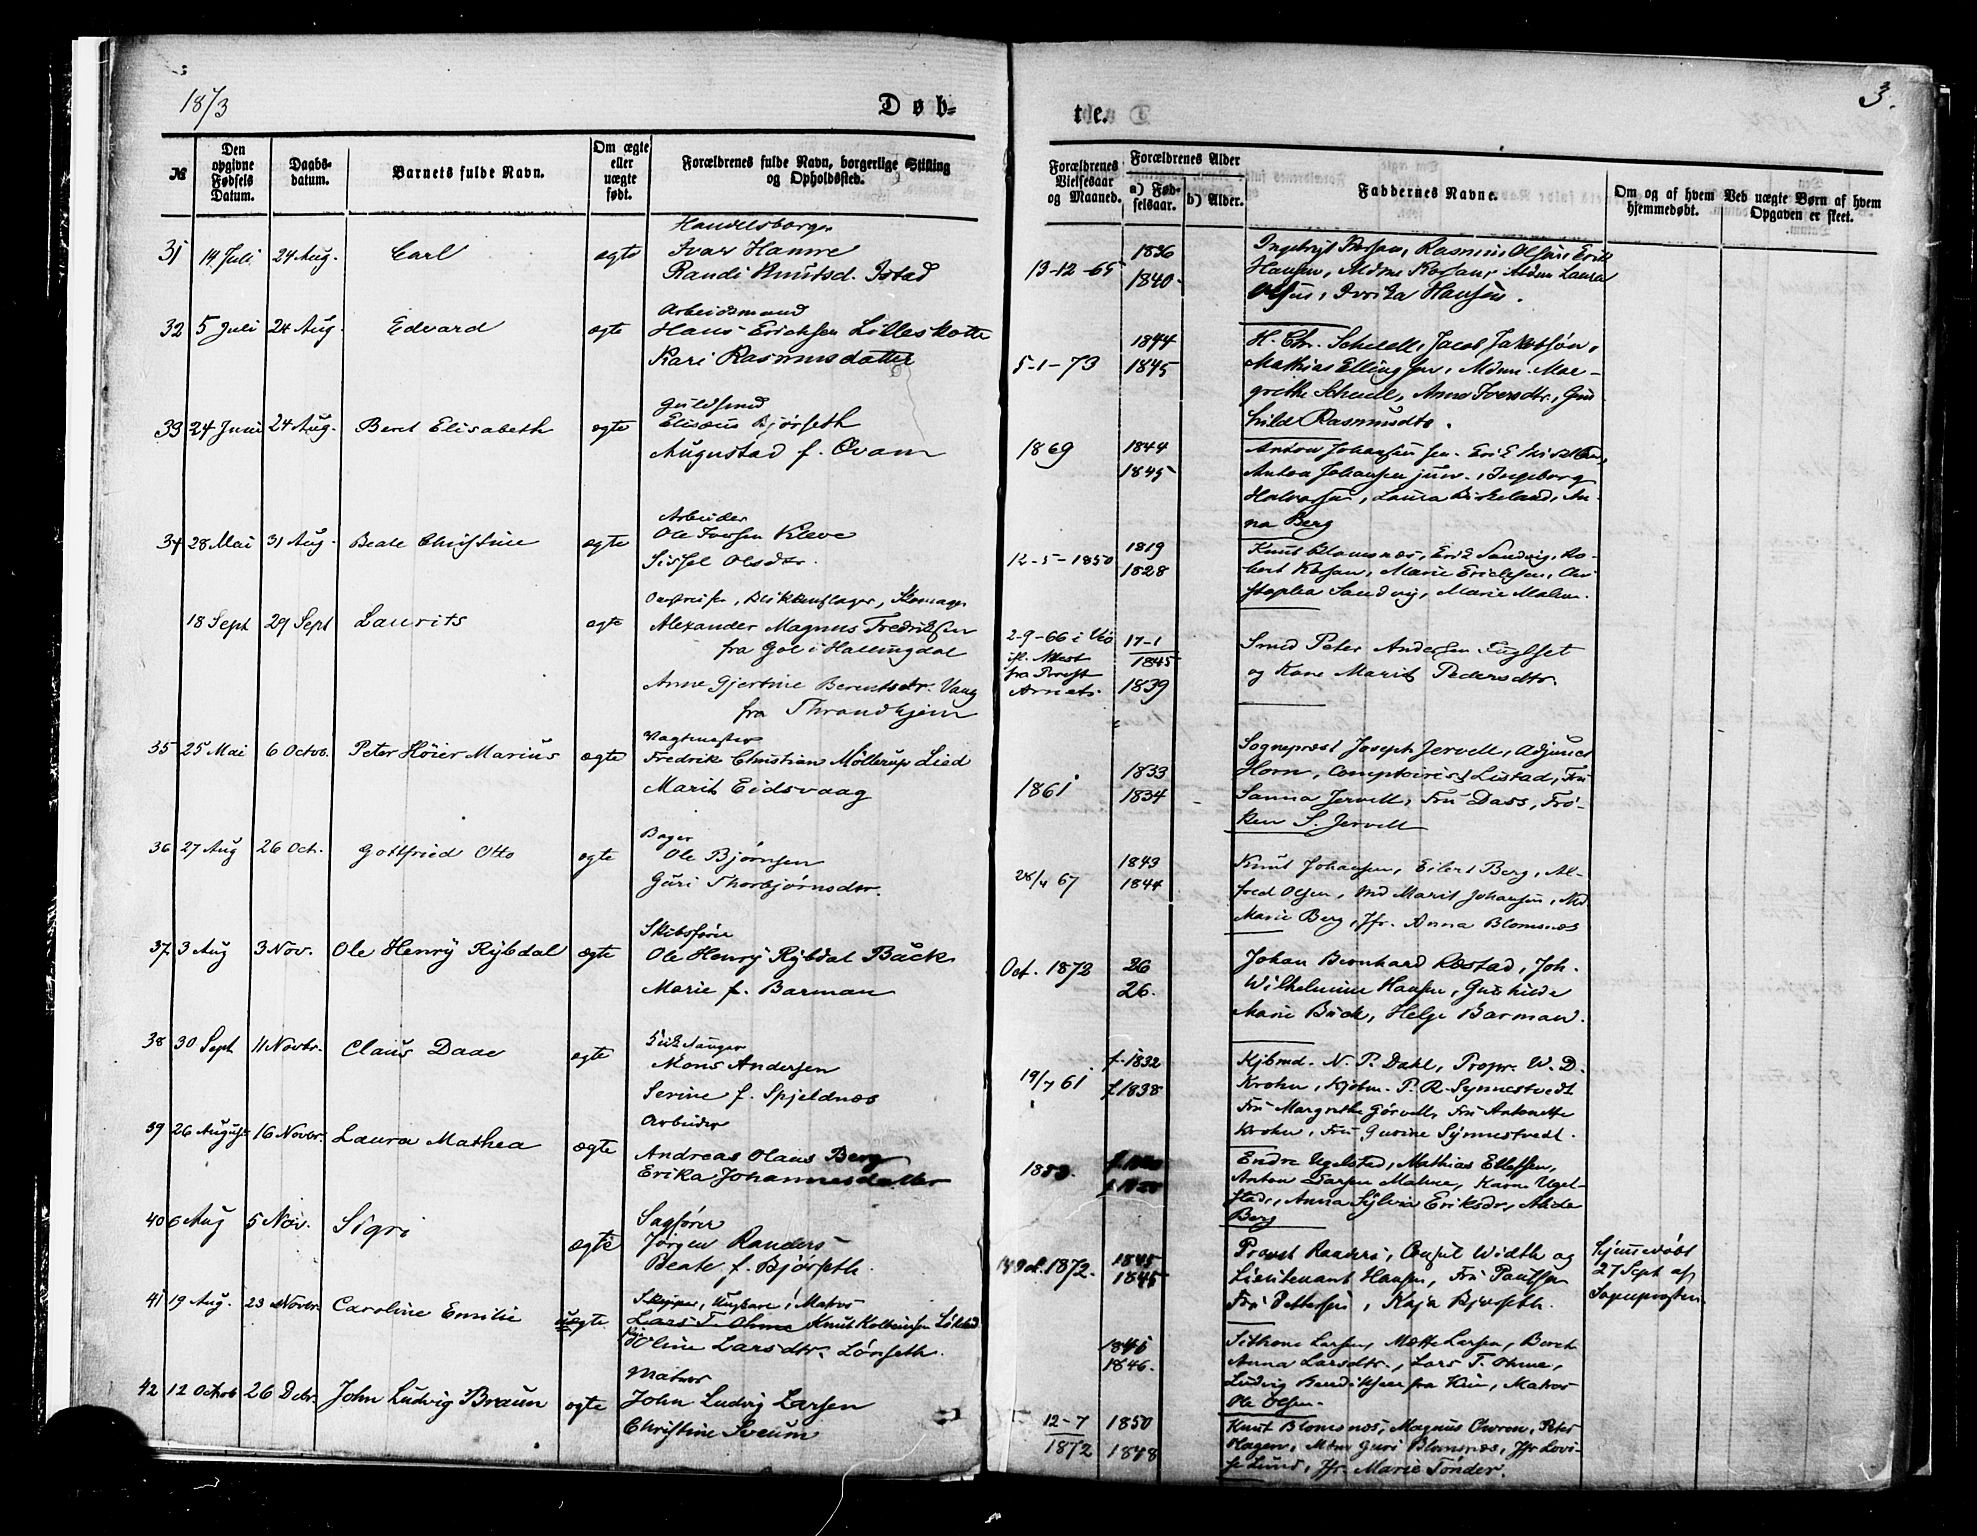 1873
Døb-
te.
3.
№
Den opgivne Fødsels Datum.
Daabs-datum.
Barnets fulde Navn.
Om ægte eller uægte født.
Forældrenes fulde Navn, borgerlige Stilling og Opholdssted.
Forældrenes Vielsesaar og Maaned.
Forældrenes Alder
a) Fødselsaar.
b) Alder.
Faddernes Navne.
Om og af hvem hjemmedøbt.
Ved uægte Børn af hvem Opgaven er skeet.
31 14 Juli 24 Aug. Carl ægte
Ivar Hamre
Randi Knutsd. Istad
13-12-65 1836
1840
Rasmus Olsen, Erik
Hansen, Laura
Hansen.
32 5 Juli 24 Aug. Edvard ægte
Arbeidsmand
Hans Ericksen Lilleskotte
Kari Rasmusdatter
5-1-73 1844
1845
H. Chr. Schiell, Jacob Jakobsøn,
Mathias Ellingsen, Mdm. Mar-
grethe Schiell, Anne Iversdtr., Gun-
hild Rasmusdtr.
33 24 Juni 24 Aug. Beret Elisabeth ægte
Guldsmed
Elisæus Bjørseth
Augustad f. Qvam
1869 1844
1845
Anton Johansen sen.
Anton Johansen jun., Ingeborg
Halvorsen, Laura Birkeland, An-
na Berg
34 28 Mai 31 Aug. Beate Christine ægte
Arbeider
Ole Iversen Kleve
Sissel Olsdtr.
12-5-1850 1819
1828
Knut Blomsnæs, Erik Sandvig, Ro-
bert Marie Ericksen, Chri-
stophia Sandvig, Marie Malm.
18 Sept 29 Sept Laurits ægte
Blikkenslager, Skomager
Alexander Magnus Fredriksen
fra Gol i Hallingdal
Anne Gjertine Berentsdtr. Vang
fra Throndhjem
2-9-66 i Veø
fra Provst
17-1
1845
1839
Smed Peter Andersen Fuglset
og Kone Marit Pedersdtr.
35 25 Mai 6 Octob. Peter Høier Marius ægte
Vagtmester
Fredrik Christian Möllerup Lied
Marit Eidsvaag
1861 1833
1834
Sognepræst Joseph Jervell, Adjunct
Horn, Comptoirist Listad, Fru
Sanna Jervell, Fru Dass, Frø-
ken S. Jervell
36 27 Aug 26 Oct. Gottfried Otto ægte
Bager
Ole Bjørnsen
Guri Thorbjørnsdtr.
28/4 67 1843
1844
Knut Johansen, Eilert Berg, Al-
fred Olsen, Md Marit Johansen, Md
Marie Berg, Jfr. Anna Blomsnæs
37 3 Aug 3 Nov. Ole Henry Rybdal ægte
Skibsfører
Ole Henry Rybdal Bäck
Marie f. Barman
Oct. 1872 26
26.
Johan Bernhard Røstad, Joh.
Wilhelmine Hansen, Gunhilde
Marie Bäck, Helge Barman.
38 30 Sept 11 Novbr. Claus Daae ægte
Mons Andersen
Serine f. Spjeldnæs
19/7 61 f. 1832
f 1838
Kjbmd. N. P. Dahl, Propr. W. D.
Krohn, Kjbm. P. R. Synnestvedt
Fru Margrethe Jervell, Fru Antonette
Krohn, Fru Gurine Synnestvedt.
39 26 August 16 Novbr. Laura Mathea ægte
Arbeider
Andreas Olaus Berg
Erika Johannesdatter
Endre Ugelstad, Mathias Ellefsen,
Anton Larsen Malme, Karen Ugel-
stad, Anna Sylvia Eriksdr,
Berg
40 6 Aug 5 Nov. Sigri ægte
Sagfører
Jørgen Randers
Beate f. Bjørseth.
1872. 1845
1845
Provst Randers, Consul Width og
Lieutenant Hansen, Fru Paulsen
Fru Pettersen, Kaja Bjørseth.
Hjemmedøbt
27 Sept af
Sognepresten
41 19 Aug. 23 Novbr. Caroline Emilie uægte
Skipper, Ungkarl, Matros
Lars T. Ohme Knut
Pige Oline Larsdtr. Lønseth.
1846.
Larsen, Mette Larsen, Beret
Anna Larsdtr., Lars T. Ohme,
Ludvig Bendiksen fra Matros
Ole Olsen.
42 12 Octob 26 Debr. John Ludvig Braun ægte
Matros
John Ludvig Larsen
Christine Sveum
12-7
1872
1850
1848
Knut Blomsnæs, Magnus Peter
Hagen, Mdm Guri Blomsnæs, Jfr Lovi-
se Lund, Jfr. Marie Tønder.